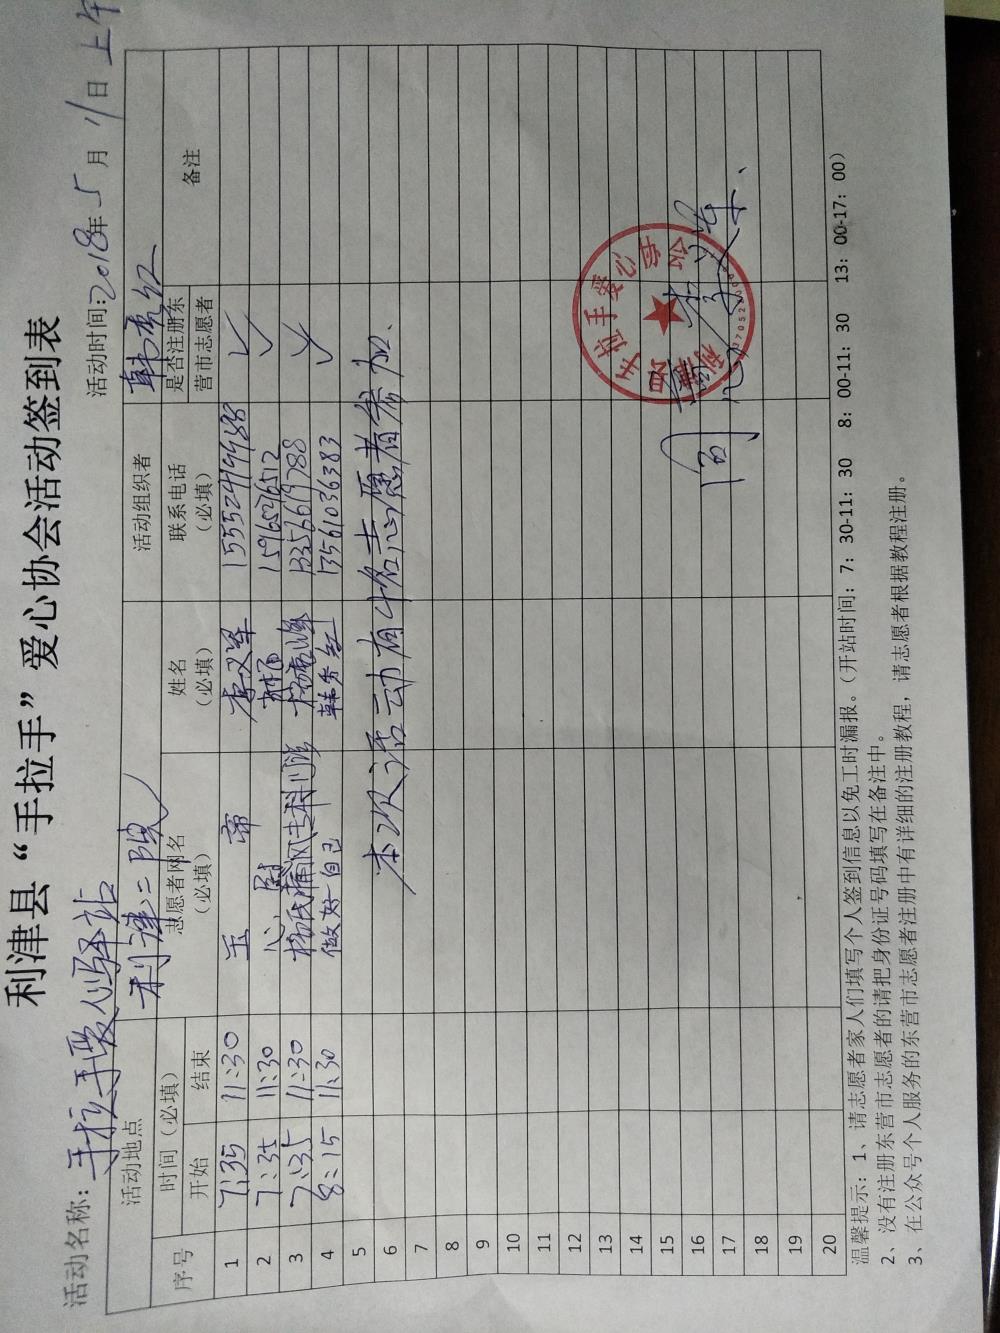 利津县“手拉手”爱心协会活动签到表
活动名称：手拉手爱心驿站 活动时间:2018年5月11日上午
活动地点 利津二院 活动组织者 韩秀红
序号 时间（必填） 志愿者网名（必填） 姓名（必填） 联系电话（必填） 是否注册东营市志愿者 备注
开始 结束
1 7:35 11:30 玉帝 李义军 ✓
2 7:35 11:30 心 15965216512 ✓
3 7:35 11:30 杨氏痛风专科 13356619788 ✓
4 8:15 11:30 做好自己 韩秀红 13561036383 ✓
5
6 本次活动有4名志愿者参加.
7
8
9
10
11
12
13
14
15
16
17
18
19
20
利津 手拉手爱心协会
温馨提示：1、请志愿者家人们填写个人签到信息以免工时漏报。（开站时间：7：30-11：30 8：00-11：30 13：00-17：00）
2、没有注册东营市志愿者的请把身份证号码填写在备注中。
3、在公众号个人服务的东营市志愿者注册中有详细的注册教程，请志愿者根据教程注册。